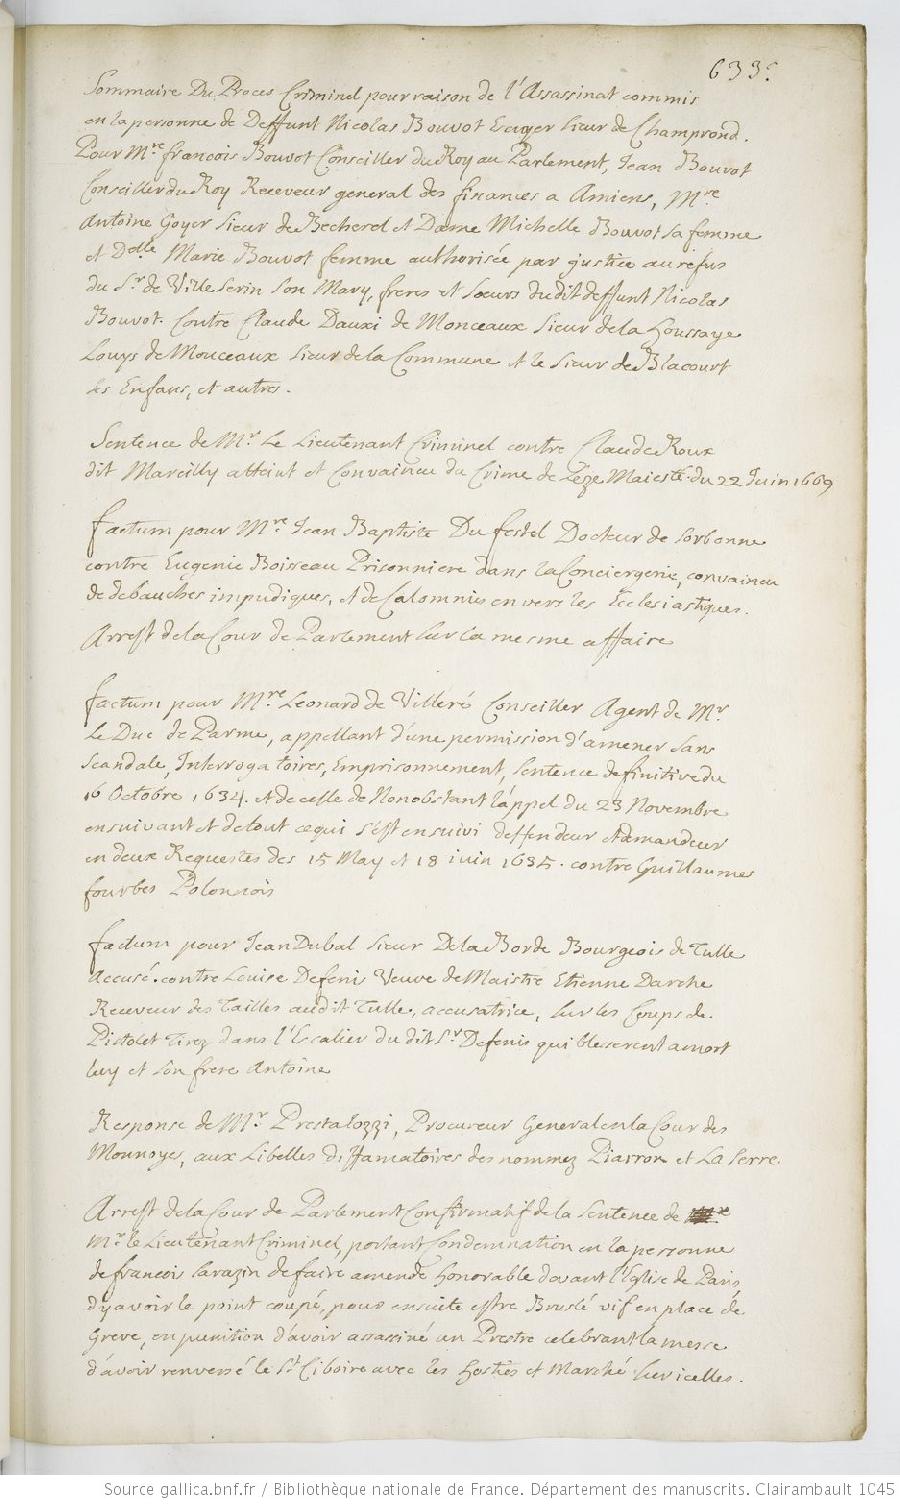 633.
Sommaire Du Proces Criminel pour raison de l'Assassinat commis
en la personne de Deffunt Nicolas Bouvot Ecuyer Sieur de Champrond.
Pour Mre francois Bouvot Conseiller du Roy au Parlement, Jean Bouvot
Conseiller du Roy Receveur general des finances a Amiens, Mre
Antoine Goyer Sieur de Becherel et Dame Michelle Bouvot sa femme
et Delle Marie Bouvot femme authorisée par justice au refus
du Sr de Ville Serin son Mary, freres et soeurs dudit deffunt Nicolas
Bouvot. Contre Claude Dauxi de Monceaux Sieur de la Houssaye
Louys de Monceaux Sieur de la Commune et le Sieur de Blacourt
ses Enfans, et autres.
Sentence de Mr Le Lieutenant Criminel contre Claude Roux
dit Marcilly atteint et Convaincu du Crime de Leze Maiesté du 22 Juin 1669
factum pour Mre Jean Baptiste Du festel Docteur de Sorbonne
contre Eugenie Boisseau Prisonniere dans la Conciergerie, convaincu
de debauches impudiques, et de Calomnies envers les Ecclesiastiques.
Arrest de la Cour de Parlement sur la mesme affaire
factum pour Mre Leonard de Villeré Conseiller Agent de Mr
Le Duc de Parme, appellant d'une permission d'amener sans
scandale, Interrogatoires, Emprisonnement, Sentence definitive du
16 Octobre 1634. et de celle de Nonobstant l'appel du 23 Novembre
ensuivant et de tout ce qui s'est ensuivi deffendeur et demandeur
en deux Requestes des 15 May et 18 juin 1635. contre Guillaumes
fourbes Polonnois
factum pour Jean Dubal Sieur De la Borde Bourgeois de Tulle
accusé. contre Louise Defeni Veuve de Maistre Etienne Darche
Receveur des Tailles audit Tulle, accusatrice, sur les Coups de
Pistolet Tirez dans l'Escalier du dit Sr Defenis qui blesserent a mort
luy et son frere Antoine
Response de Mr Prestalozzi, Procureur General en la Cour des
Monnoyes, aux Libelles diffamatoires des nommez Piarron et La Serre.
Arrest de la Cour de Parlement Confirmatif de la Sentence de
Mr le Lieutenant Criminel, portant Condemnation en la personne
de francois Sarazin de faire amende honorable devant l'Eglise de Paris,
d'y avoir le point coupé, pour ensuite estre Bruslé vif en place de
Greve, en punition d'avoir assassiné un Prestre celebrant la messe
d'avoir renversé le St Ciboire avec les hosties et Marché sur icelles.
Source gallica.bnf.fr / Bibliothèque nationale de France. Département des manuscrits. Clairambault 1045